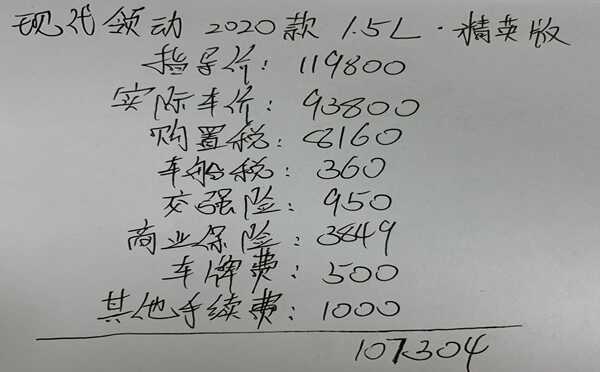 现代领动 2020款 1.5L·精英版
指导价: 119800
实际车价: 93800
购置税: 8160
车船税: 360
交强险: 950
商业保险: 3849
车牌费: 500
其他手续费: 1000
107304